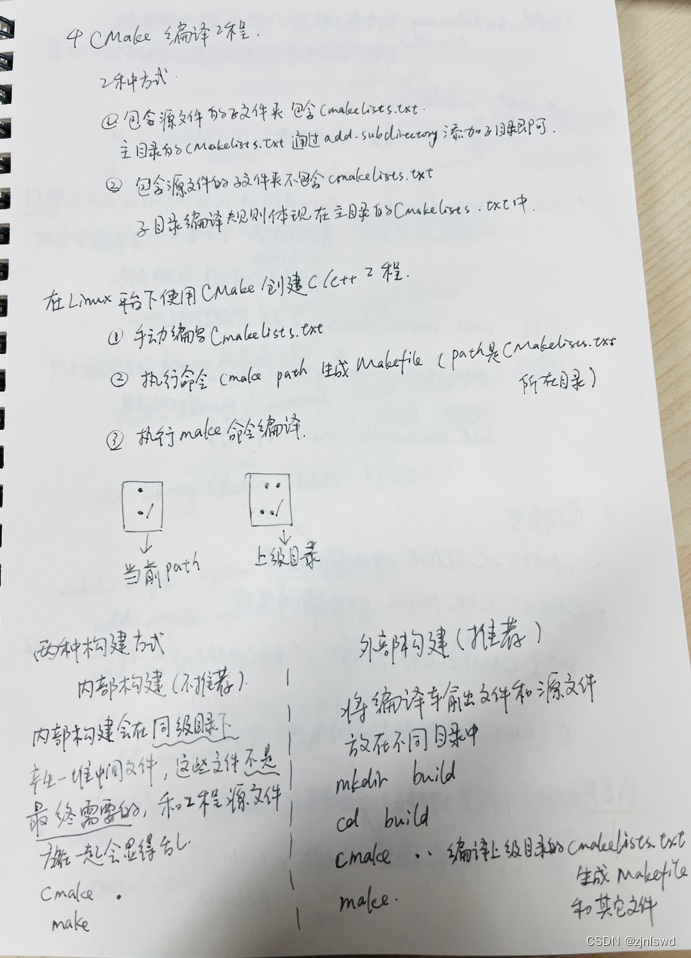 4 CMake 编译工程.
2种方式.
① 包含源文件的子文件夹 包含Cmakelists.txt.
主目录的CMakelists.txt 通过add-subdirectory 添加子目录即可.
② 包含源文件的子文件夹不包含cmakelists.txt
子目录编译规则体现在主目录的Cmakelists.txt中.
在Linux平台下使用CMake创建C/C++工程.
① 手动编写Cmakelists.txt
② 执行命令 cmake path 生成Makefile (path是CMakelists.txt
所在目录)
③ 执行make命令编译.
• ./
•• ../
当前path
上级目录
两种构建方式
内部构建(不推荐).
内部构建会在同级目录下
产生一堆中间文件, 这些文件不是
最终需要的, 和工程源文件
放在一起会显得乱.
cmake .
make
外部构建(推荐)
将编译输出文件和源文件
放在不同目录中
mkdir build
cd build
cmake .. 编译上级目录的Cmakelists.txt
生成Makefile
和其它文件
make.
CSDN @zjnlswd